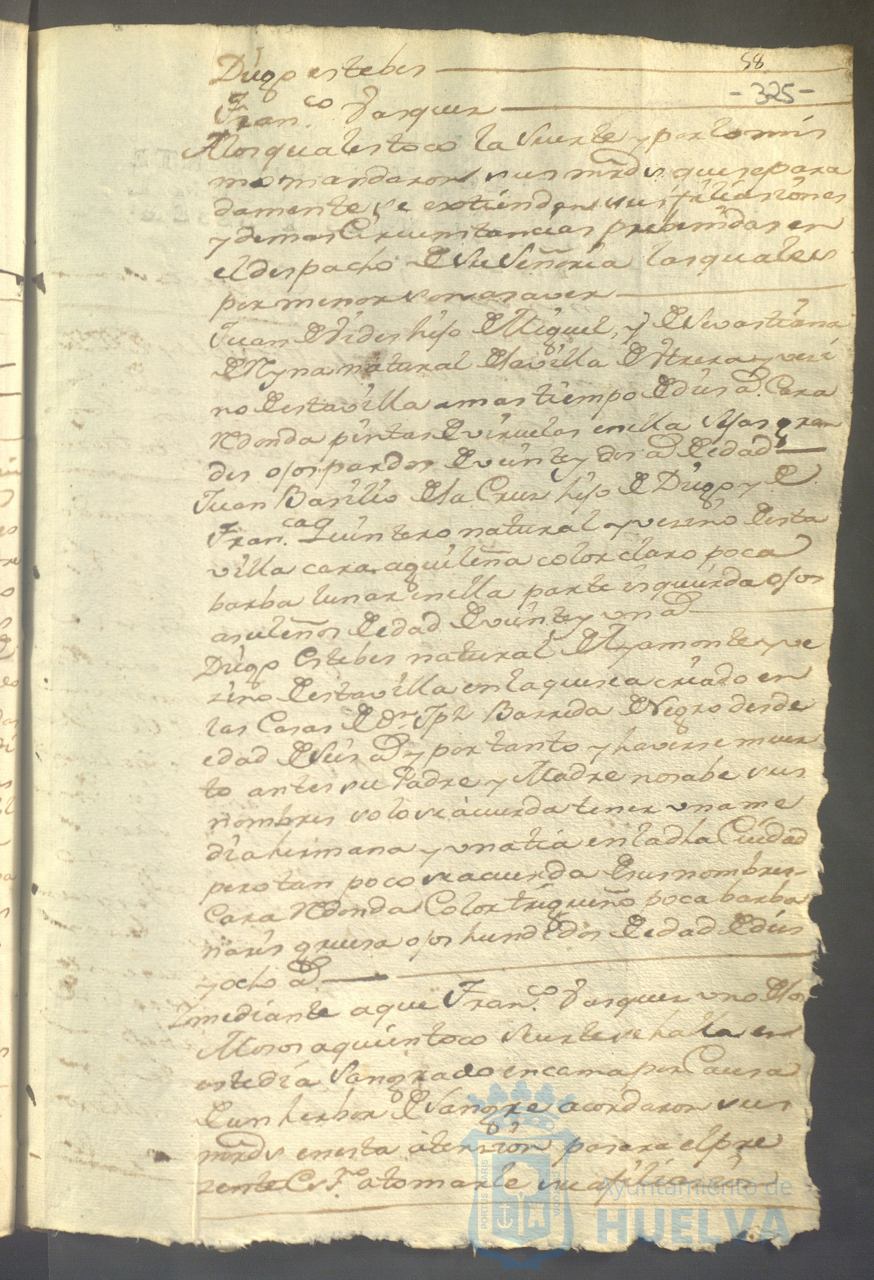 58
-325-
Diego estebes
Fran.co Vasques
A los quales toco la Suerte y por lo mis
mo mandaron sus mrds que separa
damente se extiendan sus filiaciones
y demas Circunstancias prebenidas en
el despacho de Su Señoria las quales
por menor son asaver
Juan de Vides hijo de Miguel, y de Sevastiana
de Reyna natural de la villa de Utrera y veci
no de esta villa a mas tiempo de dies as. Cara
Redonda pintas de viruelas en ella Sejas gran
des ojos pardos de veinte y dos as de edad
Juan Basilio de la Crus hijo de Diego y de
Fran.ca Quintero natural y vesino de esta
villa cara aguileña color claro poca
barba lunar en ella parte isquierda ojos
asuleños de edad de veinte y un as
Diego Estebes natural de Ayamonte y ve
sino de esta villa en la que se a criado en
las Casas de dn Jph Barrida de Negro desde
edad de seis as y por tanto y haverse muer
to antes su Padre y Madre no sabe sus
nombres solo se acuerda tener una me
dia hermana y una tia en la dha Ciudad
pero tan poco se acuerda de sus nombres
Cara Redonda Color trigueño poca barba
naris gruesa ojos hundidos de edad de dies
y ocho as.
Y mediante a que Fran.co Vasques uno de los
Mosos a quien toco Suerte se halla en
este dia Sangrado en cama por Causa
de un herbor de Sangre acordaron sus
mrds en esta atension pasara el pre
sente Es.no a tomarle su afiliasion
Ayuntamiento de
HUELVA